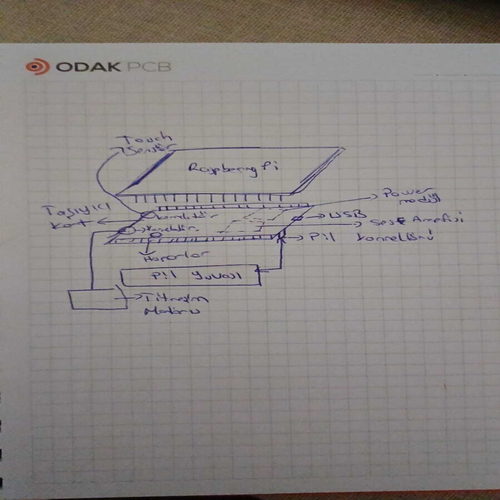 ODAK PCB
Touch
Sensör
Raspberry Pi
Taşıyıcı
Kart
Power
modül
USB
Ses Amfisi
Pil Konnektörü
Hoparlör
Pil Yuvası
Titreşim
Motoru